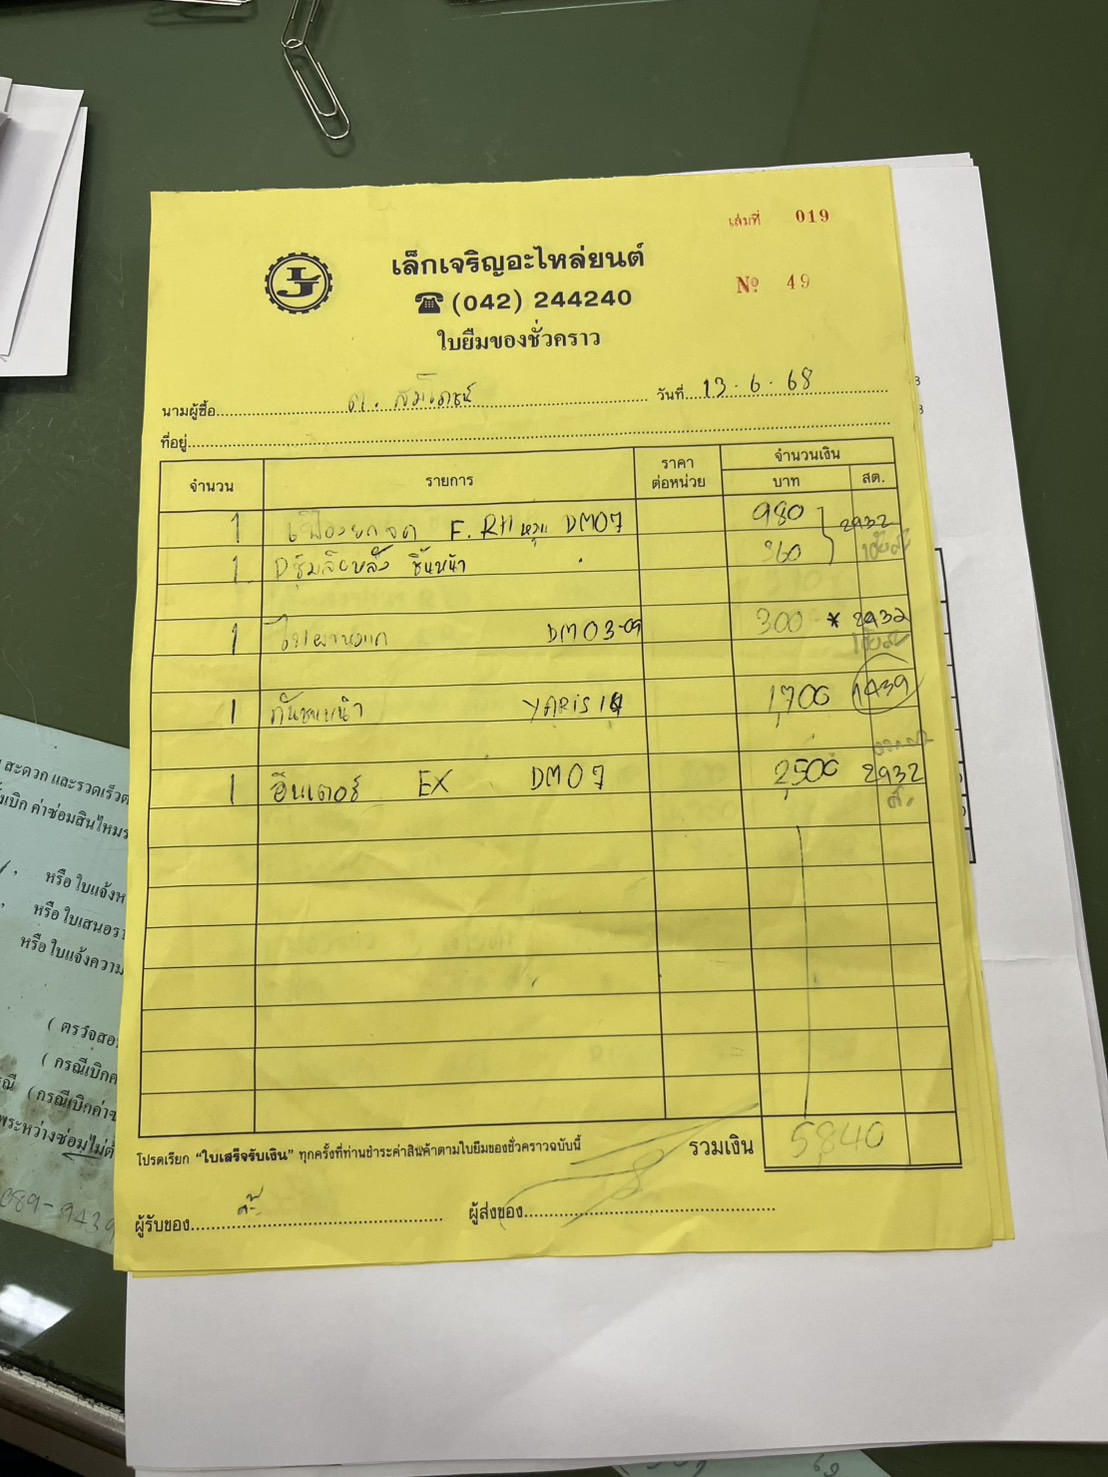 เล่มที่ 019
เล็กเจริญอะไหล่ยนต์
☎ (042) 244240
Nº 49
ใบยืมของชั่วคราว
นามผู้ซื้อ วันที่ 13.6.68
ที่อยู่
จำนวน รายการ ราคาต่อหน่วย จำนวนเงิน
บาท สต.
1 เฟืองยกจด F.RH หมุน DM07 980 2932
1 ดุมล้อหลัง ชิ้นหน้า 360
1 DM03-09 300 * 2932
1 กันชนหน้า YARIS 14 1,700 1439
1 อินเตอร์ EX DM07 2,500 2932
โปรดเรียก "ใบเสร็จรับเงิน" ทุกครั้งที่ท่านชำระค่าสินค้าตามใบยืมของชั่วคราวฉบับนี้ รวมเงิน 5,840
ผู้รับของ ผู้ส่งของ
สะดวก และรวดเร็ว
เบิก ค่าซ่อมสินไหม
หรือ ใบแจ้ง
หรือ ใบเสนอ
หรือ ใบแจ้งความ
( ตรวจสอ
( กรณีเบิก
(กรณีเบิกค่า
ระหว่างซ่อมไม่
089-9439